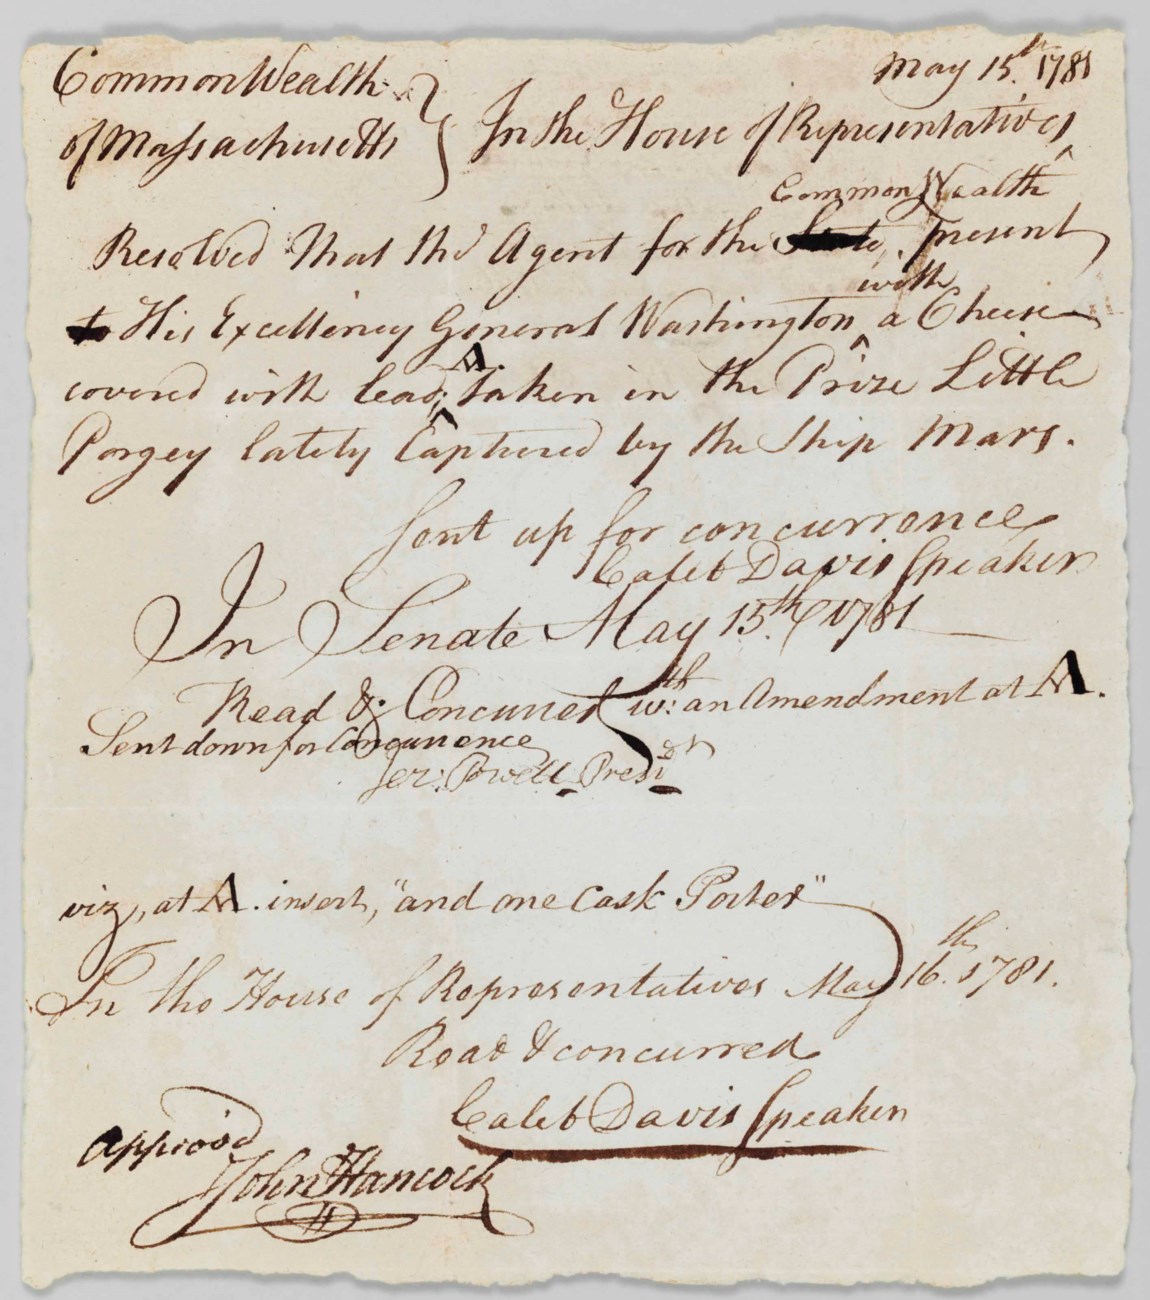 May 15th. 1781
CommonWealth
of Massachusetts } In the House of Representatives
CommonWealth
Resolved That the Agent for the State, present
with
to His Excellency General Washington ^ a Cheese
A
covered with lead; ^ taken in the Prize Little
Porgey lately Captured by the Ship Mars.
Sent up for concurrence
Caleb Davis Speaker
In Senate May 15th. 1781
Read & Concurred wth: an Amendment at A.
Sent down for Concurrence
Jer: Powell Presidt
viz, at A. insert, "and one Cask Porter"
In the House of Representatives May 16th. 1781.
Read & concurred
Caleb Davis Speaker
Approv'd
John Hancock